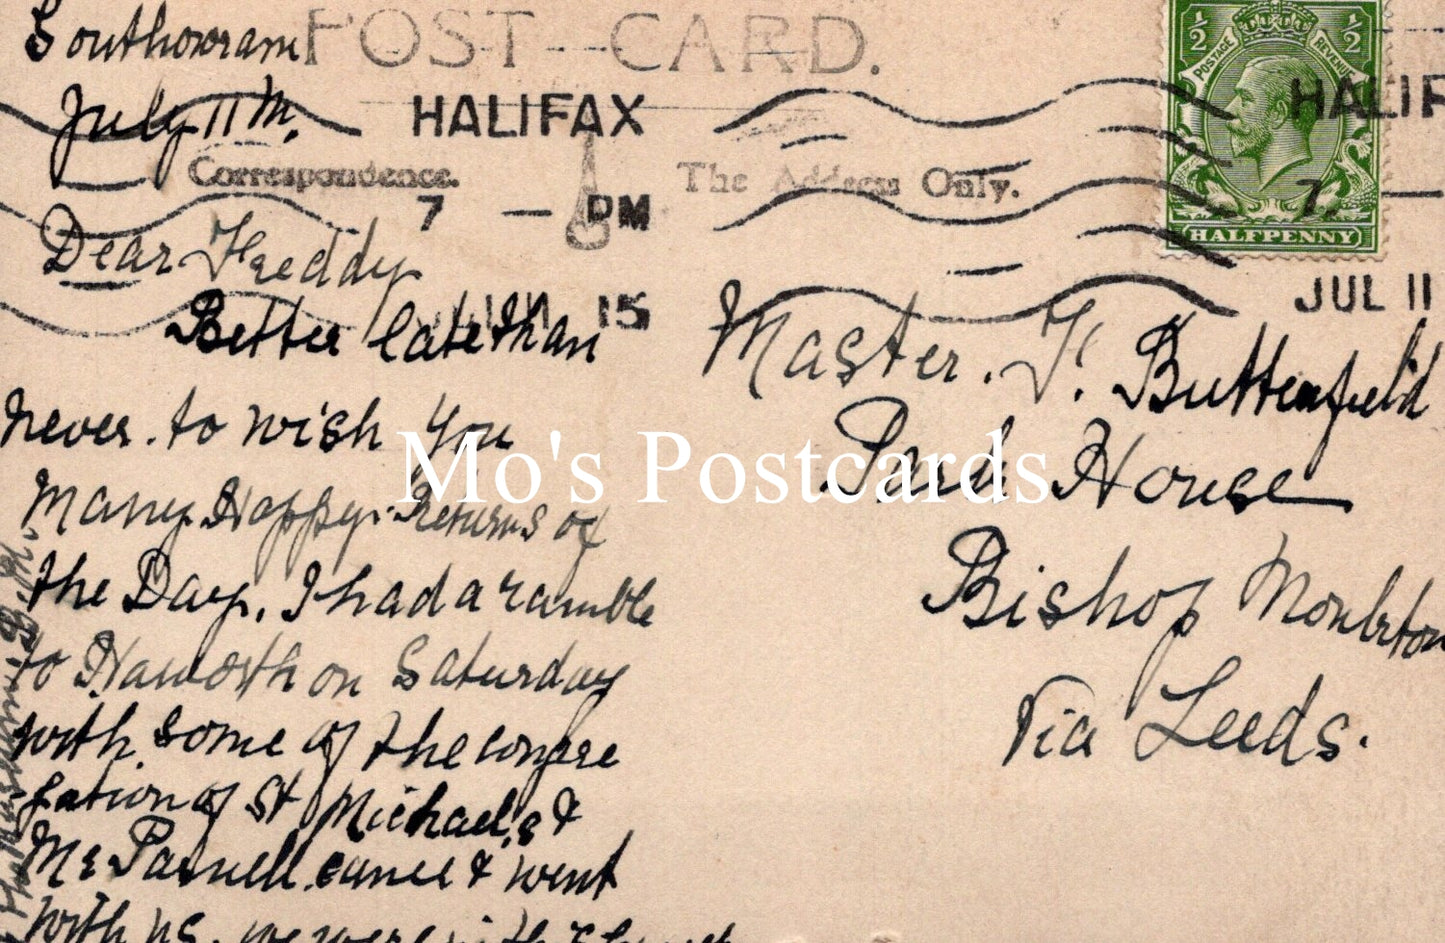 Southowram
July 11th.
POST CARD.
HALIFAX
Correspondence.
The Address Only.
7 — PM
15
½ ½
POSTAGE REVENUE
HALFPENNY
HALIF
7.
JUL 11
Dear Freddy
Better late than
never. to wish you
Many Happy. Returns of
the Day. I had a ramble
to Haworth on Saturday
with some of the congre
gation of St Michael,s &
Mr Parnell. came & went
with us. we were with
Master. F. Butterfield
Park House
Bishop Monkton
Via Leeds.
Mo's Postcards